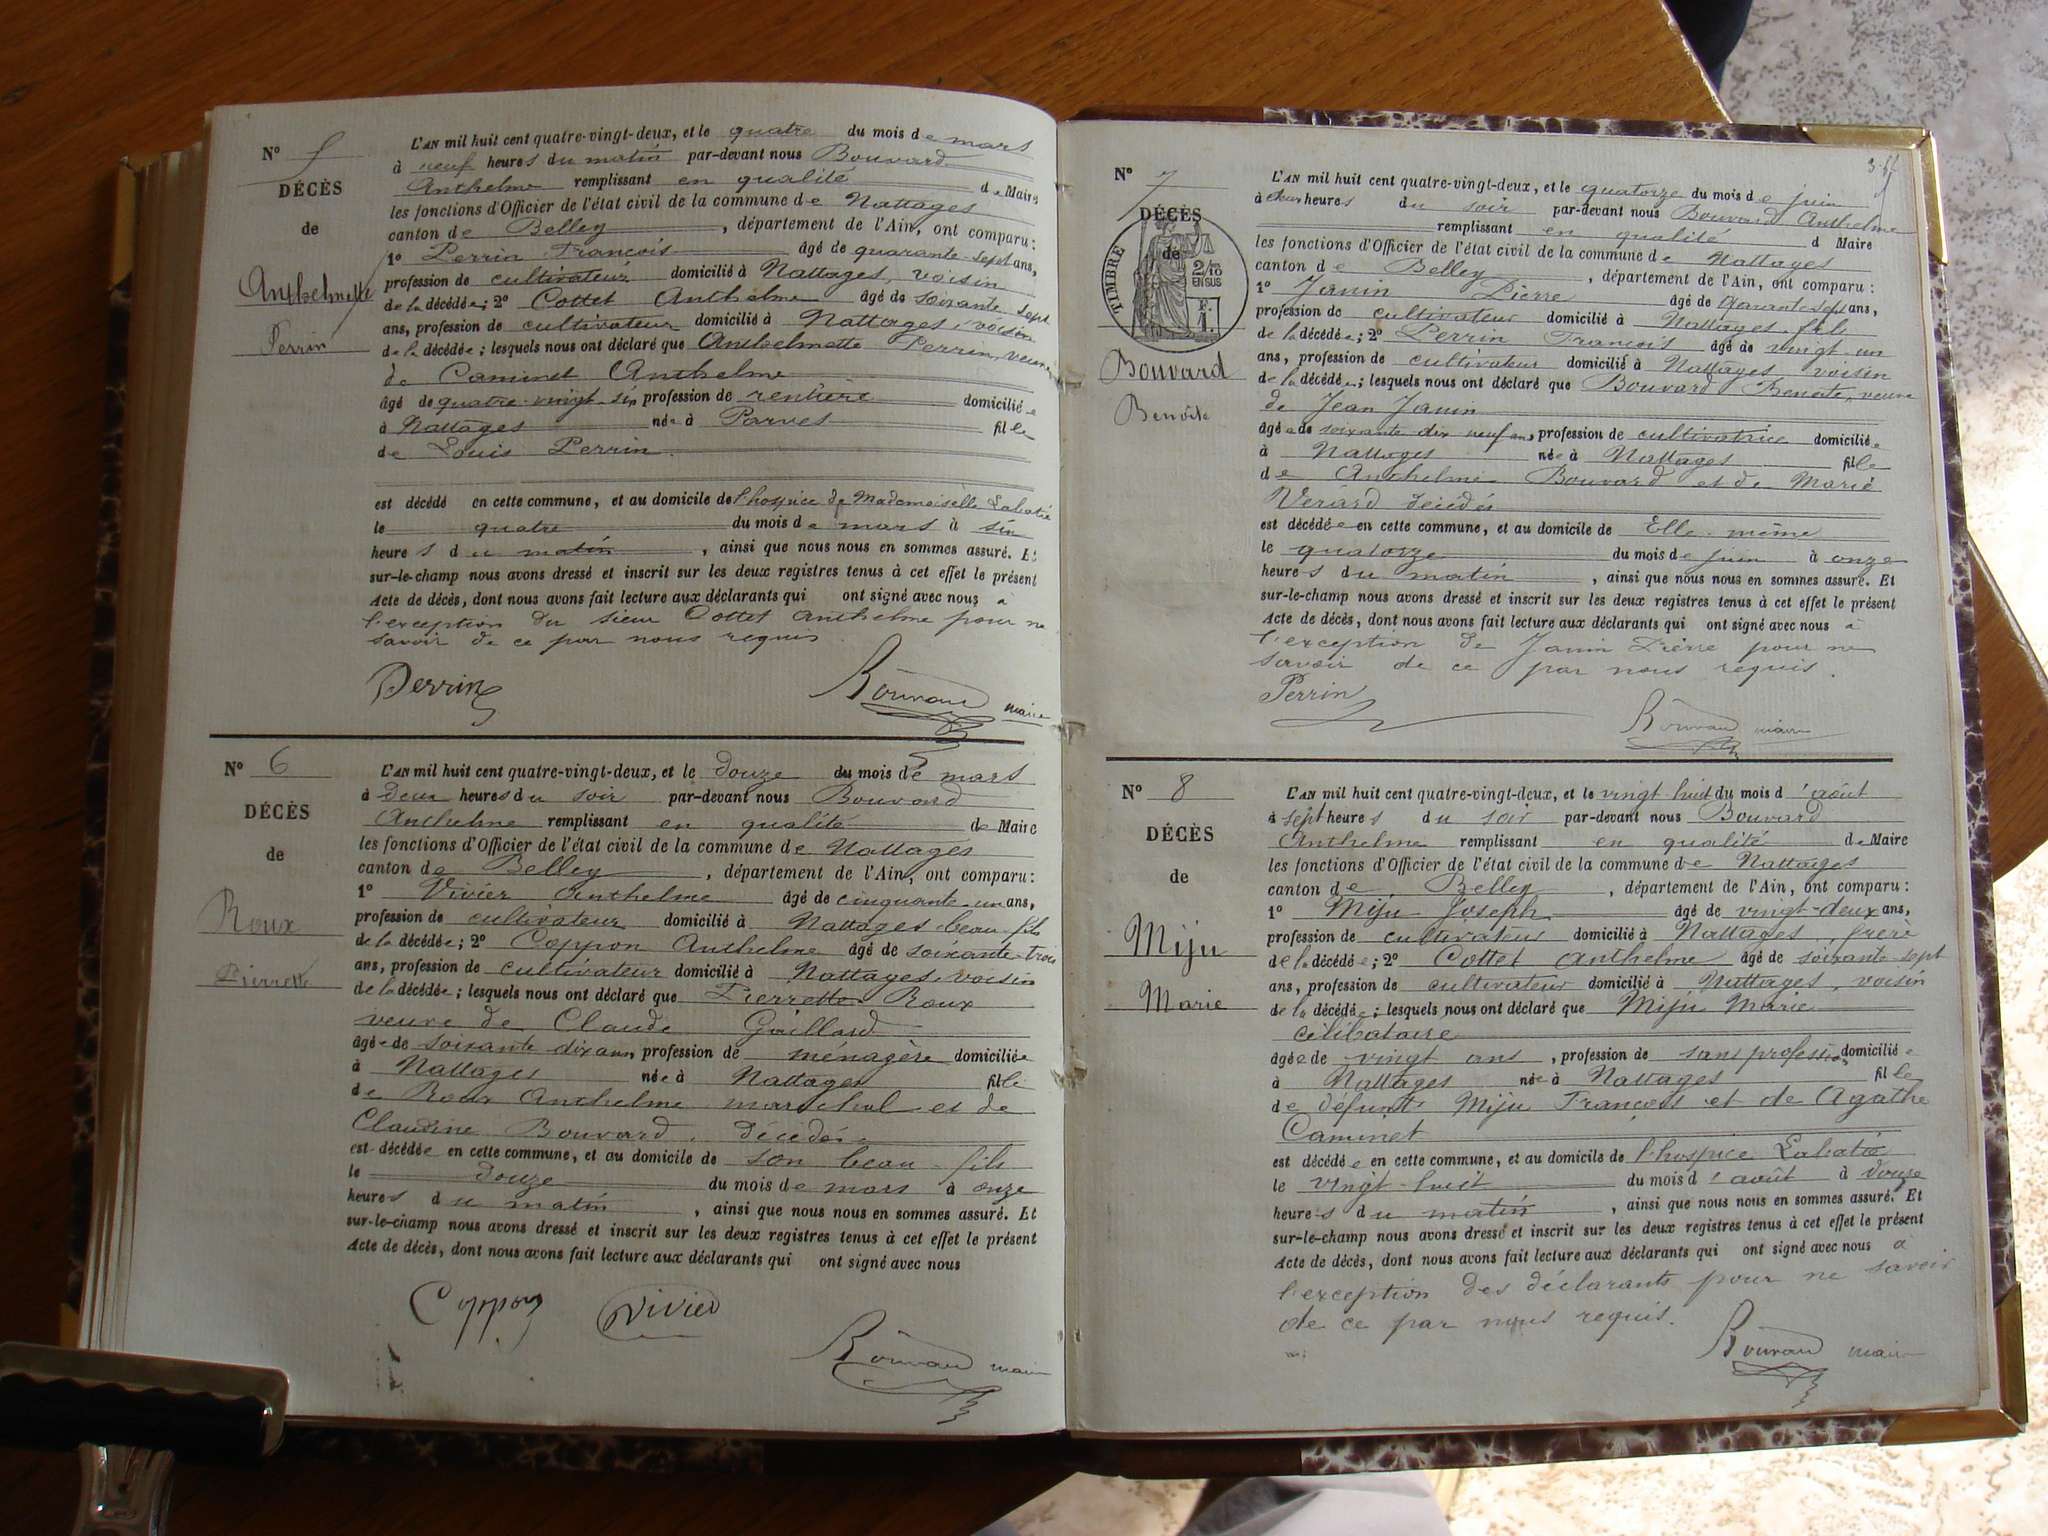 N° 5
DÉCÈS
de
Anthelmette
Perrin
L'AN mil huit cent quatre-vingt-deux, et le quatre du mois de mars
à neuf heures du matin par-devant nous Bouvard
Anthelme remplissant en qualité de Maire
les fonctions d'Officier de l'état civil de la commune de Nattages
canton de Belley, département de l'Ain, ont comparu :
1° Perrin François âgé de quarante-sept ans,
profession de cultivateur domicilié à Nattages, voisin
de la décédée ; 2° Cottet Anthelme âgé de soixante-sept
ans, profession de cultivateur domicilié à Nattages, voisin
de la décédée ; lesquels nous ont déclaré que Anthelmette Perrin, veuve
de Caminet Anthelme
âgé de quatre-vingt-six profession de rentière domiciliée
à Nattages née à Parves fille
de Louis Perrin
est décédé en cette commune, et au domicile de l'hospice de Mademoiselle Labatie
le quatre du mois de mars à six
heures du matin, ainsi que nous nous en sommes assuré. Et
sur-le-champ nous avons dressé et inscrit sur les deux registres tenus à cet effet le présent
Acte de décès, dont nous avons fait lecture aux déclarants qui ont signé avec nous à
l'exception du sieur Cottet Anthelme pour ne
savoir de ce par nous requis
Perrin Bouvard maire
N° 6
DÉCÈS
de
Roux
Pierrette
L'AN mil huit cent quatre-vingt-deux, et le douze du mois de mars
à deux heures du soir par-devant nous Bouvard
Anthelme remplissant en qualité de Maire
les fonctions d'Officier de l'état civil de la commune de Nattages
canton de Belley, département de l'Ain, ont comparu :
1° Vivier Anthelme âgé de cinquante-un ans,
profession de cultivateur domicilié à Nattages beau-fils
de la décédée ; 2° Coppon Anthelme âgé de soixante-trois
ans, profession de cultivateur domicilié à Nattages, voisin
de la décédée ; lesquels nous ont déclaré que Pierrette Roux
veuve de Claude Gaillard
âgée de soixante dix ans, profession de ménagère domiciliée
à Nattages née à Nattages fille
de Roux Anthelme maréchal et de
Claudine Bouvard, décédés
est décédée en cette commune, et au domicile de son beau-fils
le douze du mois de mars à onze
heures du matin, ainsi que nous nous en sommes assuré. Et
sur-le-champ nous avons dressé et inscrit sur les deux registres tenus à cet effet le présent
Acte de décès, dont nous avons fait lecture aux déclarants qui ont signé avec nous
Coppon Vivier
Bouvard maire
N° 7
DÉCÈS
de
TIMBRE
2/10
EN SUS
Bouvard
Benoîte
L'AN mil huit cent quatre-vingt-deux, et le quatorze du mois de juin
à deux heures du soir par-devant nous Bouvard Anthelme
remplissant en qualité d Maire
les fonctions d'Officier de l'état civil de la commune de Nattages
canton de Belley, département de l'Ain, ont comparu :
1° Janin Pierre âgé de quarante-sept ans,
profession de cultivateur domicilié à Nattages, fils
de la décédée ; 2° Perrin François âgé de vingt-un
ans, profession de cultivateur domicilié à Nattages, voisin
de la décédée ; lesquels nous ont déclaré que Bouvard Benoite, veuve
de Jean Janin
âgée de soixante dix neuf ans, profession de cultivatrice domiciliée
à Nattages née à Nattages fille
de Anthelme Bouvard et de Marie
Verard décédés
est décédée en cette commune, et au domicile de Elle-même
le quatorze du mois de juin à onze
heures du matin, ainsi que nous nous en sommes assuré. Et
sur-le-champ nous avons dressé et inscrit sur les deux registres tenus à cet effet le présent
Acte de décès, dont nous avons fait lecture aux déclarants qui ont signé avec nous à
l'exception de Janin Pierre pour ne
savoir de ce par nous requis.
Perrin Bouvard maire
N° 8
DÉCÈS
de
Miju
Marie
L'AN mil huit cent quatre-vingt-deux, et le vingt-huit du mois d'août
à sept heures du soir par-devant nous Bouvard
Anthelme remplissant en qualité de Maire
les fonctions d'Officier de l'état civil de la commune de Nattages
canton de Belley, département de l'Ain, ont comparu :
1° Miju Joseph âgé de vingt-deux ans,
profession de cultivateur domicilié à Nattages, frère
de la décédée ; 2° Cottet Anthelme âgé de soixante-sept
ans, profession de cultivateur domicilié à Nattages, voisin
de la décédée ; lesquels nous ont déclaré que Miju Marie
célibataire
âgée de vingt ans, profession de sans profession domiciliée
à Nattages née à Nattages fille
de défunt Miju François et de Agathe
Caminet
est décédée en cette commune, et au domicile de l'hospice Labatie
le vingt-huit du mois d'août à douze
heures du matin, ainsi que nous nous en sommes assuré. Et
sur-le-champ nous avons dressé et inscrit sur les deux registres tenus à cet effet le présent
Acte de décès, dont nous avons fait lecture aux déclarants qui ont signé avec nous à
l'exception des déclarants pour ne savoir
de ce par nous requis.
Bouvard maire